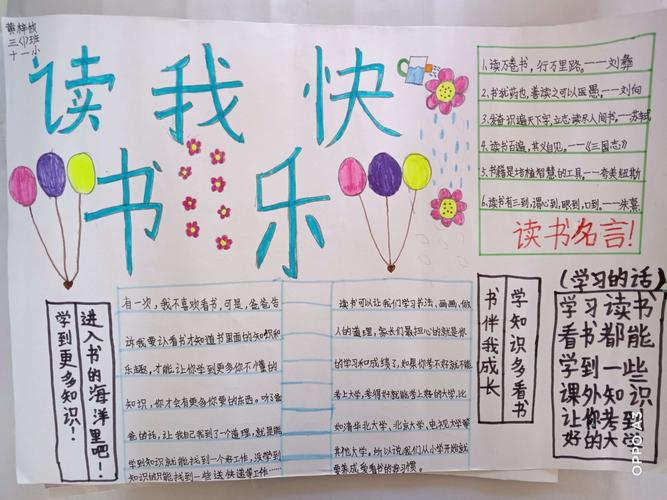 黄梓
三(1)班
十一小
读我快
书乐
1.读万卷书，行万里路。——刘彝
2.书犹药也，善读之可以医愚。——刘向
3.发奋识遍天下字，立志读尽人间书。——苏轼
4.读书百遍，其义自见。——《三国志》
5.书籍是培植智慧的工具。——夸美纽斯
6.读书有三到，谓心到，眼到，口到。——朱熹
读书名言！
进入书的海洋里吧！
学到更多知识！
有一次，我不喜欢看书，可是，爸爸告
诉我要认看书才知道书里面的知识和
乐趣，才能让你学到更多你不懂的
知识，你才会有更多你要的东西。听
爸的话，让我自己找到了一个道理，就是
学到知识就能找到一个好工作，没学到
知识的只能找到一些送快递等工作……
读书可以让我们学习书法、画画、做
人的道理，家长们最担心的就是
的学习和成绩了，如果你考不好就不能
考上大学，考得好就能考上好的大学，比
如清华北大学，北京大学，电视大学等
其他大学。所以说我们从小学开始就
要养成爱看书的好习惯。
学知识多看书
书伴我成长
(学习的话)
学习读书
看书都能
学到一些
课外知识
让你考到
好的大学
OPPO A3